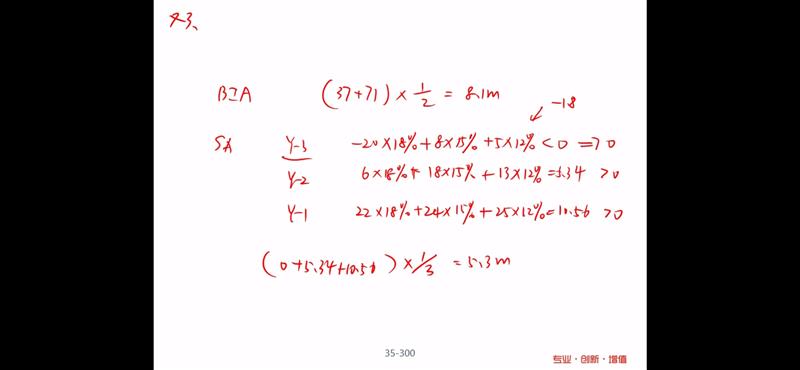 43、
BIA (37+71) × 1/2 = 8.1m
-18
SA Y-3 -20×18%+8×15%+5×12% <0 => 0
Y-2 6×18%+ 18×15% +13×12%=5.34 >0
Y-1 22×18%+24×15%+25×12%=10.56 >0
(0+5.34+10.56) × 1/3 = 5.3m
35-300
专业·创新·增值